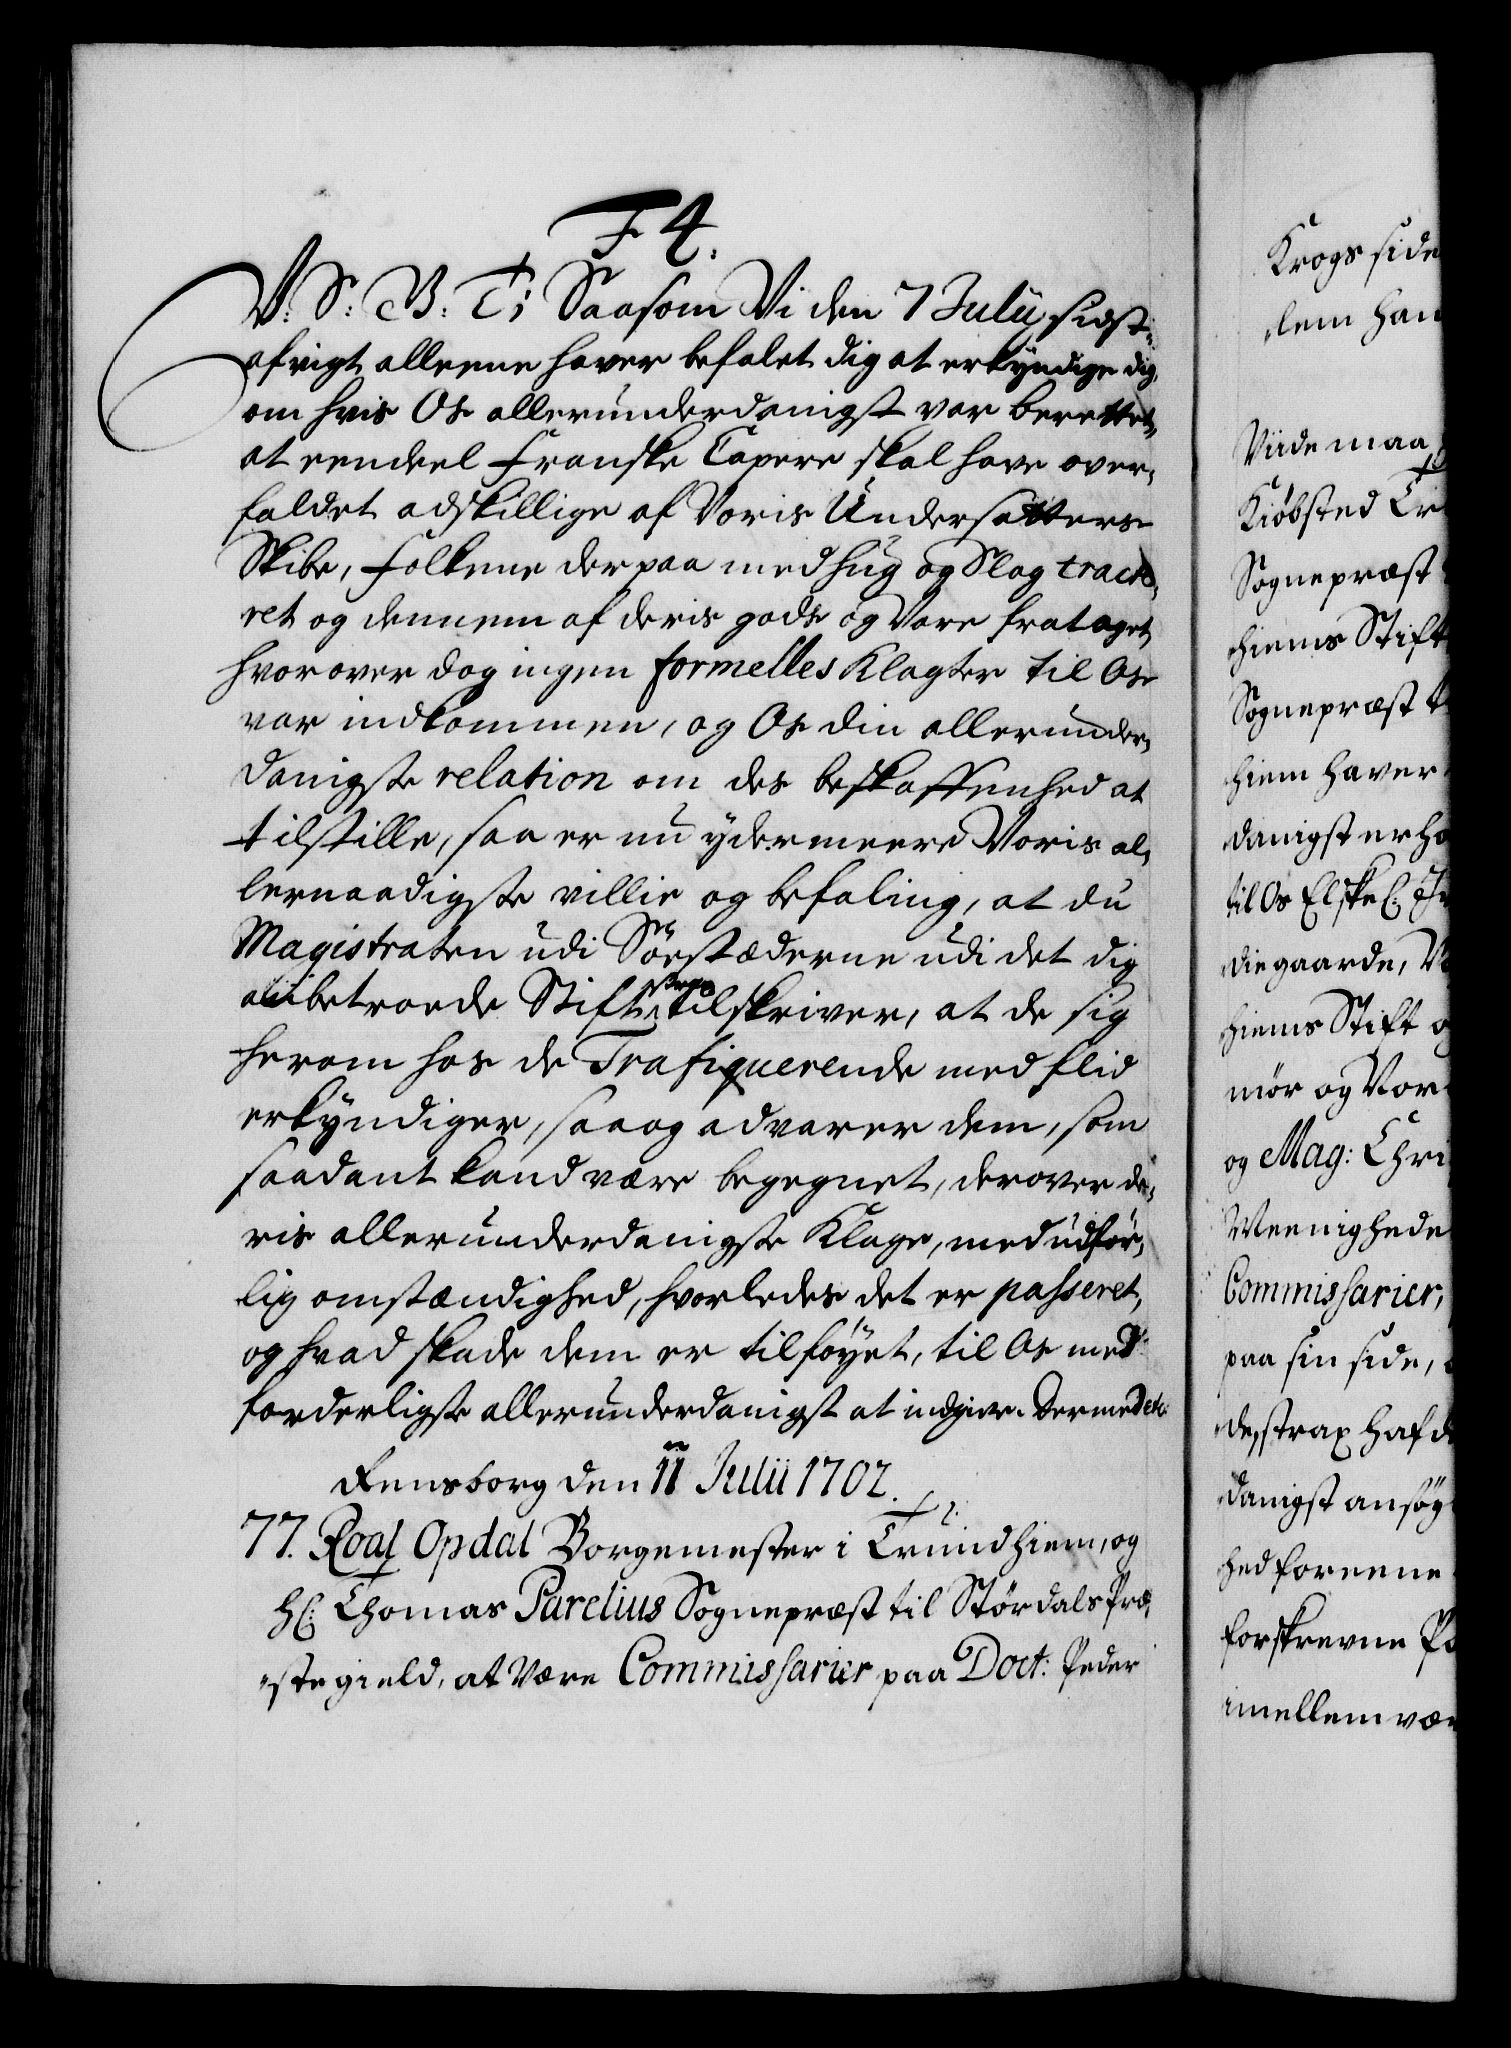 F 4.
V: S: B: T: Saasom Vi den 7 Julii sidst-
afvigt alleene haver befalet dig at erkyndige dig,
om hvis Os allerunderdanigst var berettet,
at eendeel Franske Capere skal have over-
faldet adskillige af Voris Undersatters
Skibe, folkene derpaa med hug og Slag tracte-
ret og dennem af deris gods og Vare frataget,
hvorover dog ingen formelles Klagter til Os
var indkommen, og Os din allerunder-
danigste relation om des beskaffenhed at
tilstille, saa er nu ydermeere Voris al-
lernaadigste villie og befaling, at du
Magistraten udi Söestæderne udi det dig
anbetroede Stift tilskriver, at de sig
herom hos de Trafiquerende med flid
erkyndiger, saa og advarer dem, som
saadant kand være begegnet, derover de-
ris allerunderdanigste Klage, med udför-
lig omstændighed, hvorledes det er passeret,
og hvad skade dem er tilföyet, til Os med
forderligste allerunderdanigst at indgive. Dermed etc:
Rensborg den 11 Julii 1702.
77. Roal Opdal Borgemester i Trundhiem, og
Hr: Thomas Parelius Sognepræst til Stördals Præ-
stegield, at være Commissarier paa Doct: Peder
Krogs side
dem han
Viide maa
Kiöbsted Tr
Sognepræst
hiems Stift
Sognepræst t
hiem haver
danigst erho
til Os Elskel:
diegaarde, V
hiems Stift o
mör og Vor
og Mag: Chri
Meenighede
Commissarier,
paa sin side,
de, strax hafd
danigst ansög
hed forneene
forskrevne P
imellem vær